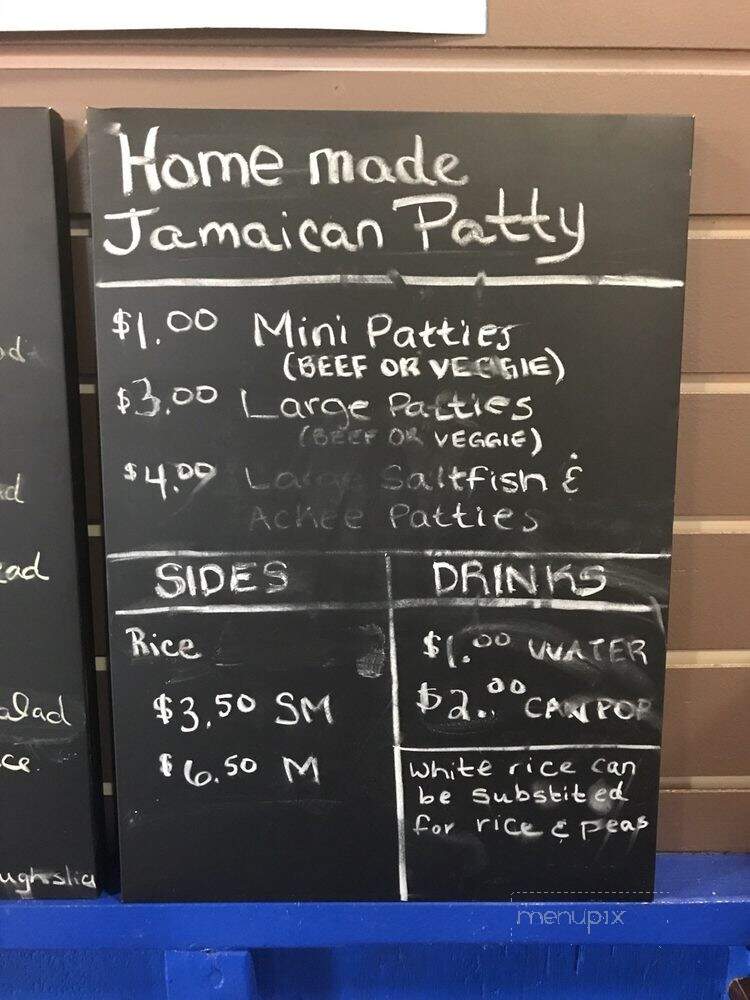 Home made
Jamaican Patty
$1.00 Mini Patties
(BEEF OR VEGGIE)
$3.00 Large Patties
(BEEF OR VEGGIE)
$4.00 Large Saltfish &
Ackee Patties
SIDES
Rice
$3.50 SM
$6.50 M
DRINKS
$1.00 WATER
$2.00 CAN POP
White rice can
be Substited
for rice & peas
menupix